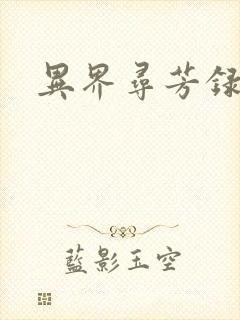 異界尋芳録
藍影玉空